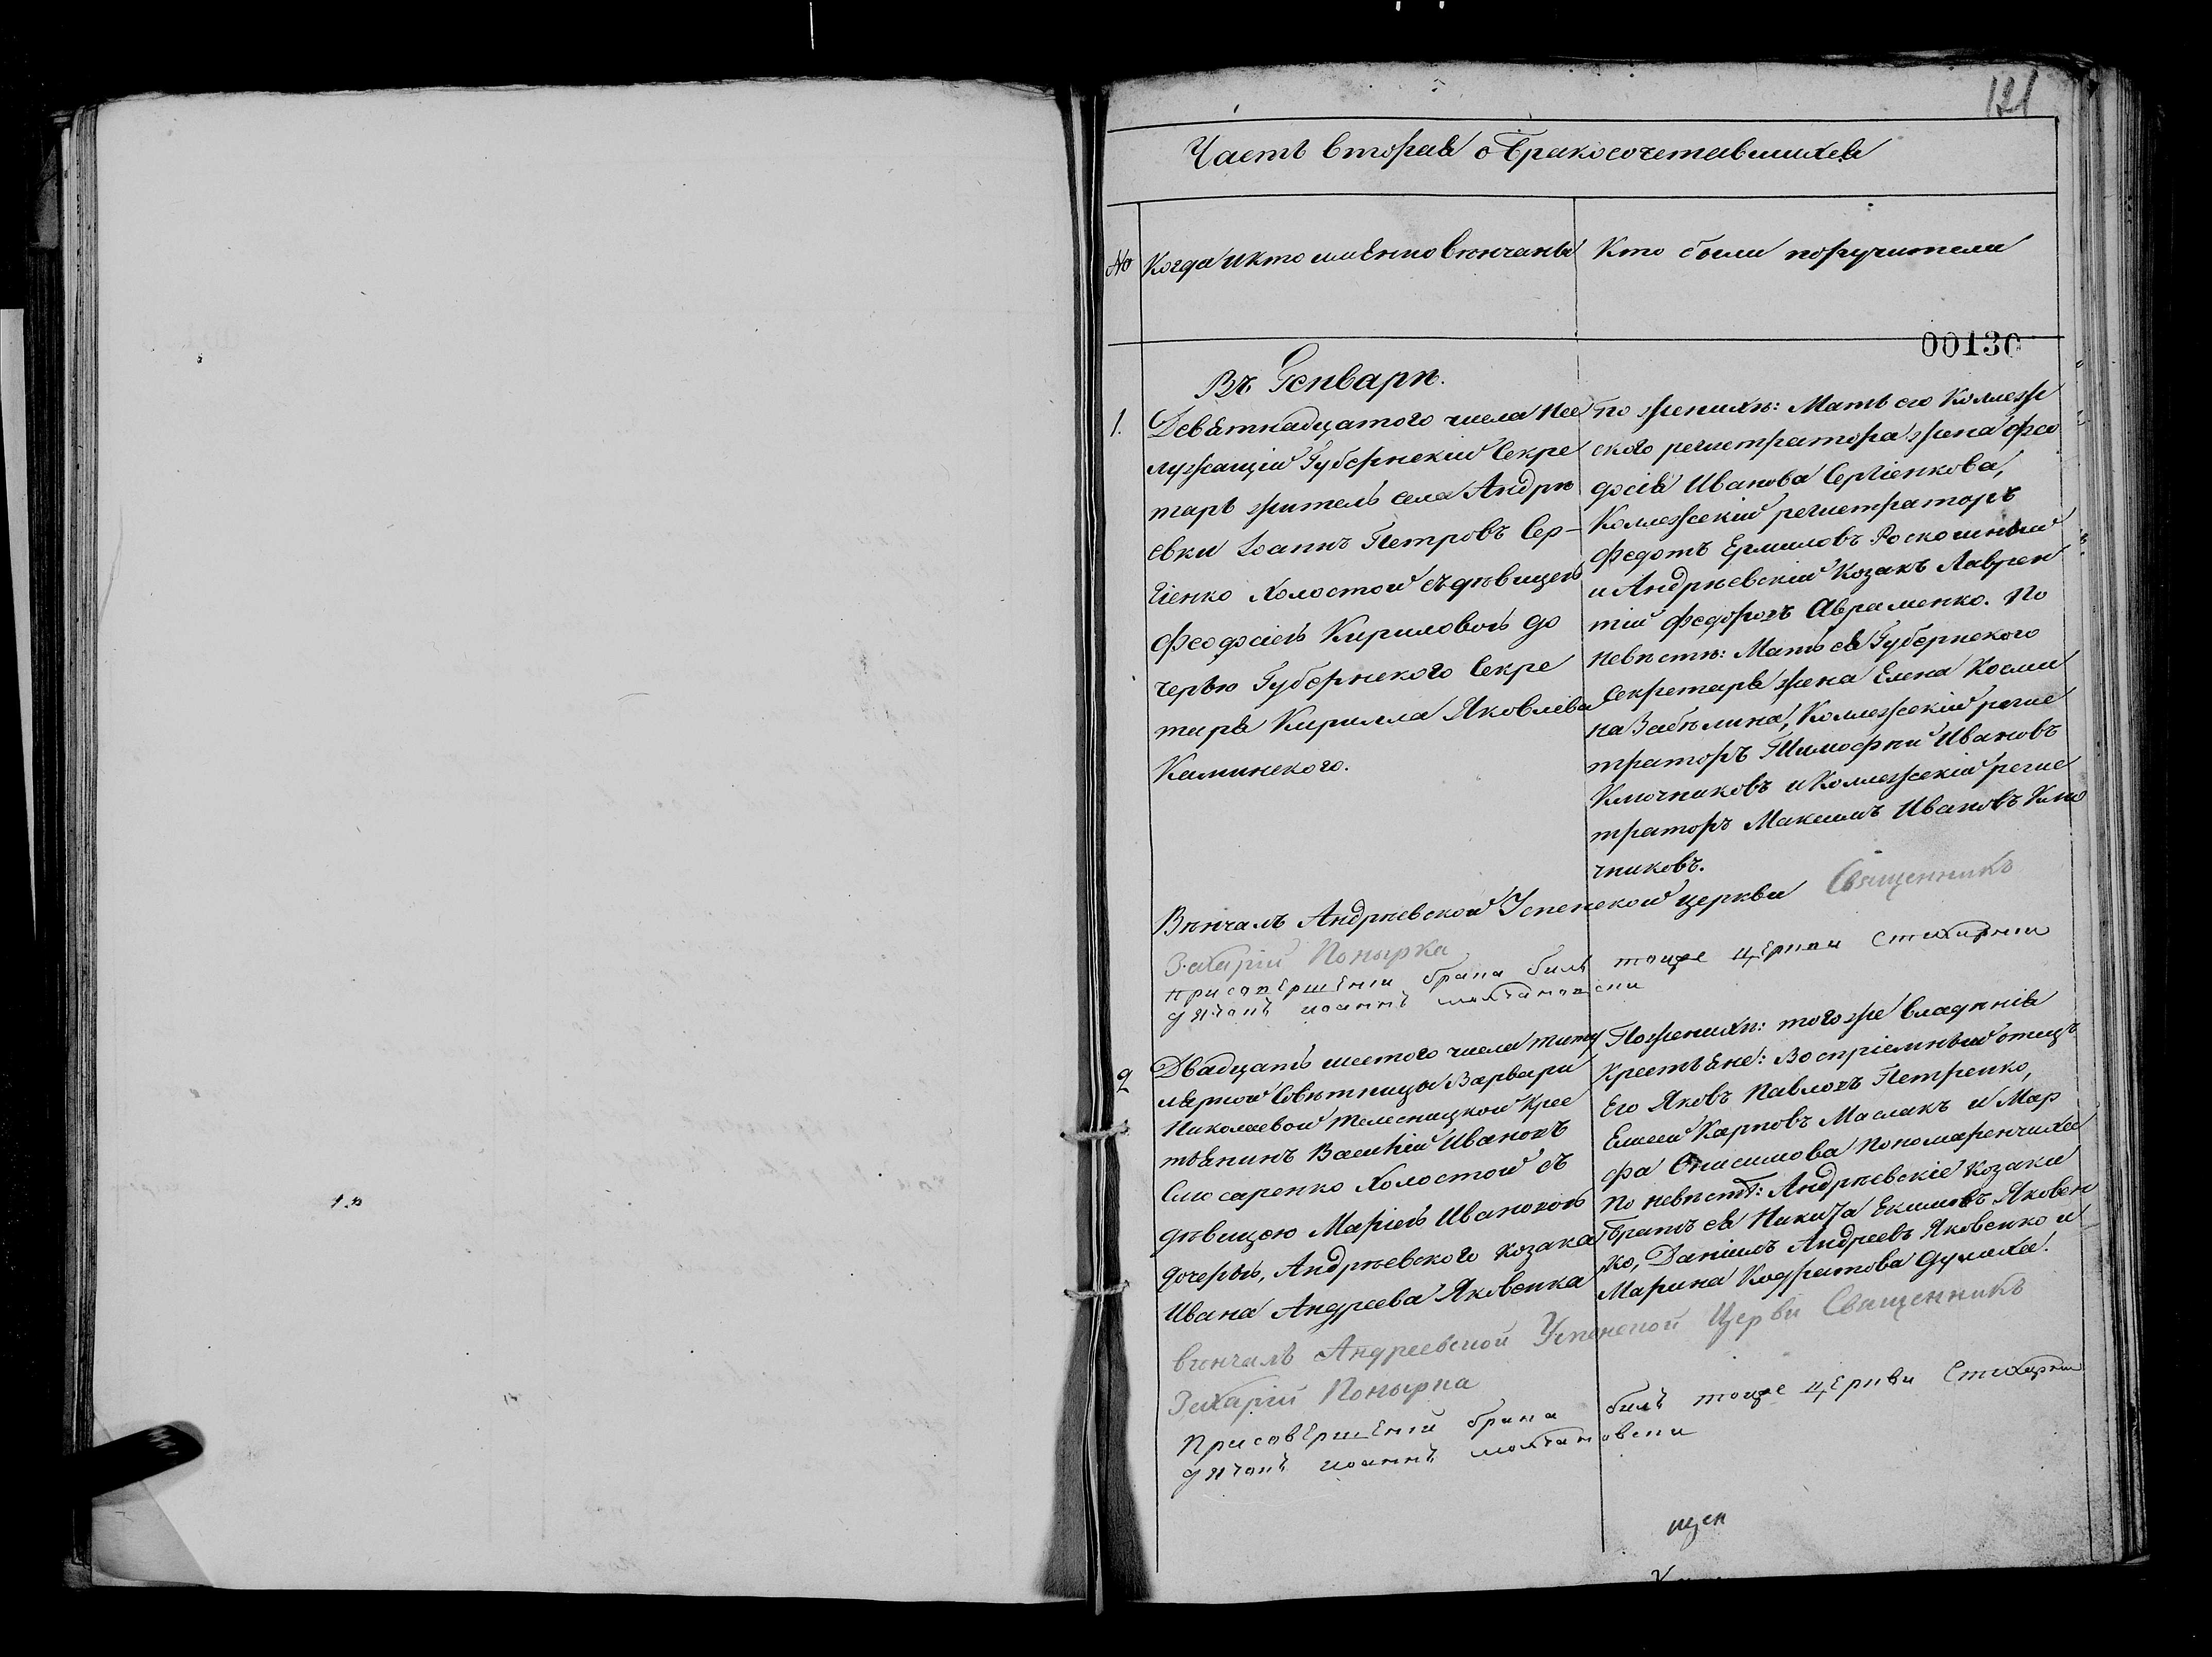 121
Часть вторая о бракосочетавшихся
№ Когда и кто именно венчаны
Кто были поручители
00130
Въ Генваре.
1. Девятнадцатого числа Нес
лужащій Губернскій Секре
тарь житель села Андрѣ
евки Іоаннъ Петровъ Сер-
гіенко холостой съ дѣвицею
Феодосіею Кириловою до
черью Губернского Секре
таря Кирилла Яковлева
Каминского.
По женихѣ: Мать его Коллеж
ского регистратора жена Фео
досія Иванова Сергіенкова,
Коллежскій регистраторъ
Федотъ Ермиловъ Роскошный
и Андрѣевскій козакъ Лаврен
тій Федоровъ Авраменко. По
невѣстѣ: Мать ея Губернского
Секретаря жена Елена Косми
на Забѣлина, Коллежскій регис
траторъ Тимофѣй Ивановъ
Ключниковъ и Коллежскій регис
траторъ Максимъ Ивановъ Клю
чниковъ.
Вѣнчалъ Андрѣевской Успенской церкви Священникъ
Захарій Понырка
при совершеніи брака былъ тоиже церкви стихарни
дячокъ иоаннъ
2 Двадцать шестого числа титу
лярной Совѣтницы Варвары
Николаевой Телесницкой крес
тьянинъ Василій Ивановъ
Слюсаренко холостой съ
дѣвицею Маріею Ивановою
дочерью, Андрѣевского козака
Ивана Андреева Яковенка
По женихѣ: того же владѣнія
крестьяне: Воспріемный отецъ
Его Яковъ Павловъ Петренко,
Елисей Карповъ Маслакъ и Мар
фа Онисимова Пономаренчиха
По невѣстѣ: Андрѣевскіе козаки
братъ ея Никита Екимовъ Яковен
ко, Даніилъ Андреевъ Яковенко и
Марина Кодратова Дулиха.
винчалъ Андреевской Успенской Церви Священникъ
Захарій Понырка
При совершеніи брака былъ тоиже церкви Стихарни
дячокъ иоаннъ
щен